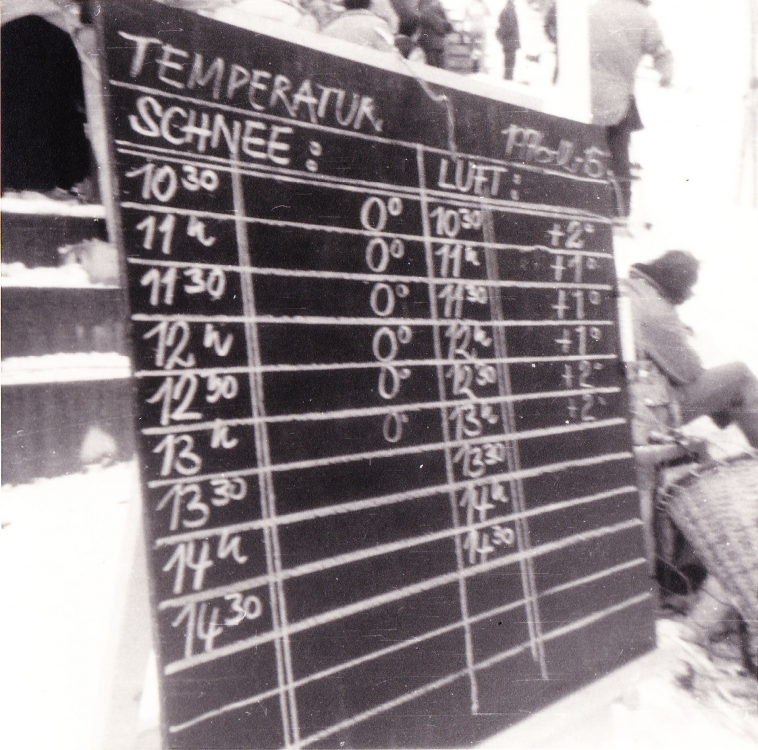 TEMPERATUR.
SCHNEE: LUFT:
10³⁰ 0° 10³⁰ +2°
11ʰ 0° 11ʰ +1°
11³⁰ 0° 11³⁰ +1°
12ʰ 0° 12ʰ +1°
12³⁰ 0° 12³⁰ +2°
13ʰ 0° 13ʰ +2°
13³⁰ 13³⁰
14ʰ 14ʰ
14³⁰ 14³⁰